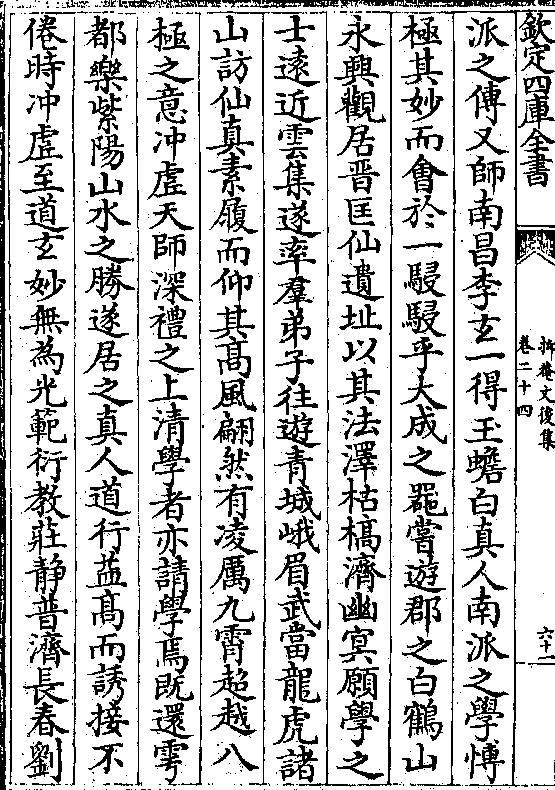 欽定四庫全書
卷二十四
六十一
派之傳又師南昌李玄一得玉蟾白真人南派之學愽
極其妙而會於一駸駸乎大成之器嘗遊郡之白鶴山
永興觀居晋匡仙遺址以其法澤枯槁濟幽冥願學之
士遠近雲集遂率羣弟子往遊青城峨眉武當龍虎諸
山訪仙真素履而仰其髙風翩然有凌厲九霄超越八
極之意冲虛天師深禮之上清學者亦請學焉既還雩
都樂紫陽山水之勝遂居之真人道行益髙而誘接不
倦時冲虛至道玄妙無為光範衍教莊静普濟長春劉